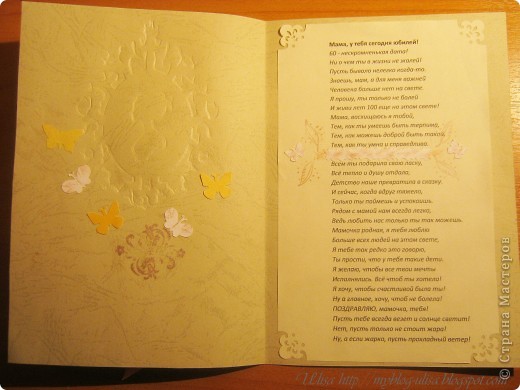 Мама, у тебя сегодня юбилей!
60 - нескромненькая дата?
Ни о чем ты в жизни не жалей!
Пусть бывало нелегко когда-то.
Знаешь, мам, а для меня важней
Человека больше нет на свете
Я прошу, ты только не болей
И живи лет 100 еще на этом свете!
Мама, восхищаюсь я тобой,
Тем, как ты умеешь быть терпима,
Тем, как можешь доброй быть такой,
Тем, как ты умна и справедлива.
Всем ты подарила свою ласку,
Всё тепло и душу отдала,
Детство наше превратила в сказку.
И сейчас, когда вдруг тяжело,
Только ты поймешь и успокоишь.
Рядом с мамой нам всегда легко,
Ведь любить нас только ты так можешь.
Мамочка родная, я тебя люблю
Больше всех людей на этом свете,
Я тебе так редко это говорю,
Ты прости, что у тебя такие дети.
Я желаю, чтобы все твои мечты
Исполнились. Всё чтоб ты хотела!
Я хочу, чтобы счастливой была ты!
Ну а главное, хочу, чтоб не болела!
ПОЗДРАВЛЯЮ, мамочка, тебя!
Пусть тебе всегда везет и солнце светит!
Нет, пусть только не стоит жара!
Ну, а если жарко, пусть прохладный ветер!
Ulisa http://myblogulisa.blogspot.com
© Страна Мастеров